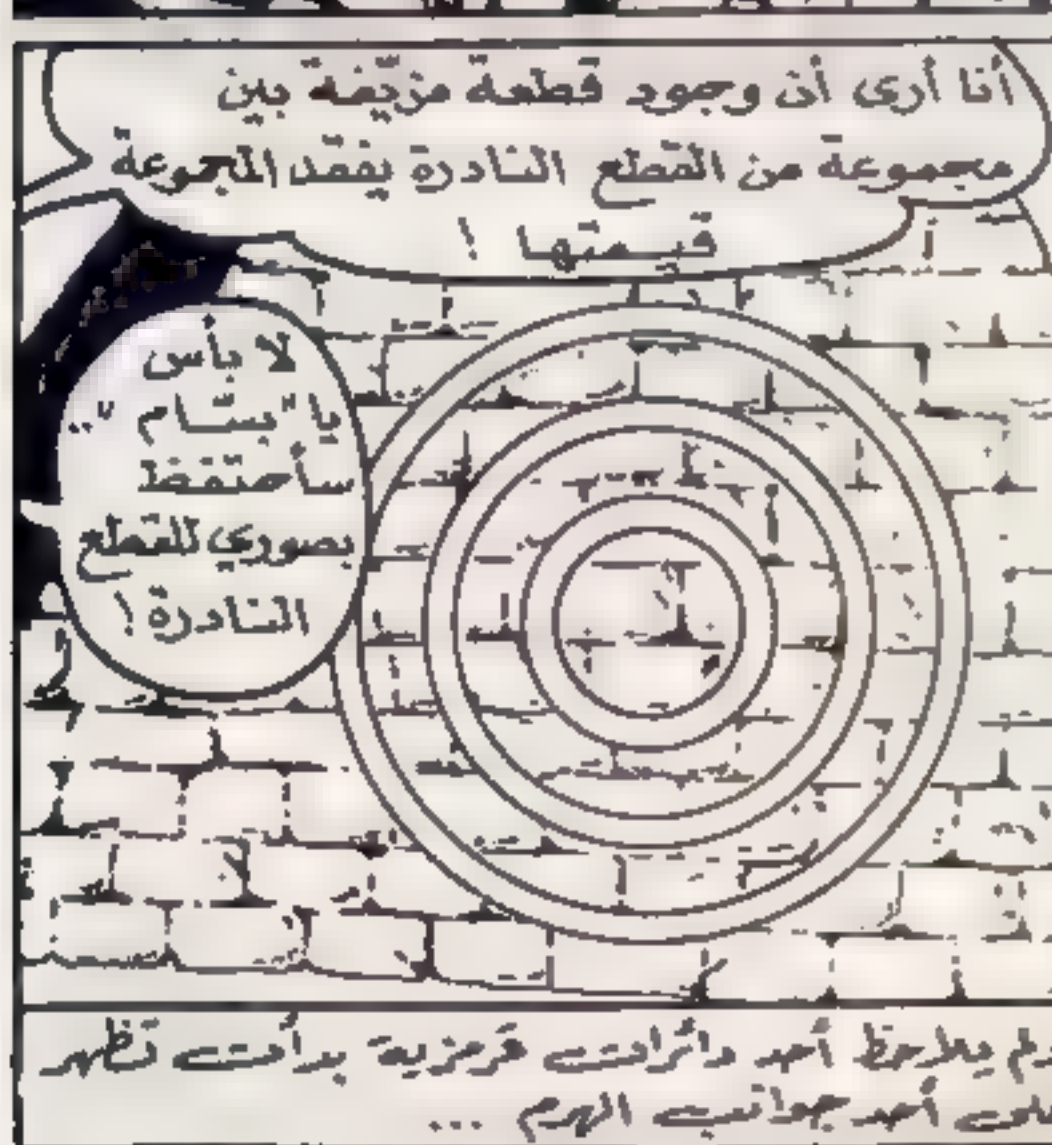 أنا أرى أن وجود قطعة مزيّفة بين
مجموعة من القطع النادرة يفقد المجموعة
قيمتها !
لا بأس
يا "بسّام "..
سأحتفظ
بصوري للقطع
النادرة !
ولم يلاحظ أحد دائرات قرمزية بدأت تظهر
على أحد جوانب الهرم ...